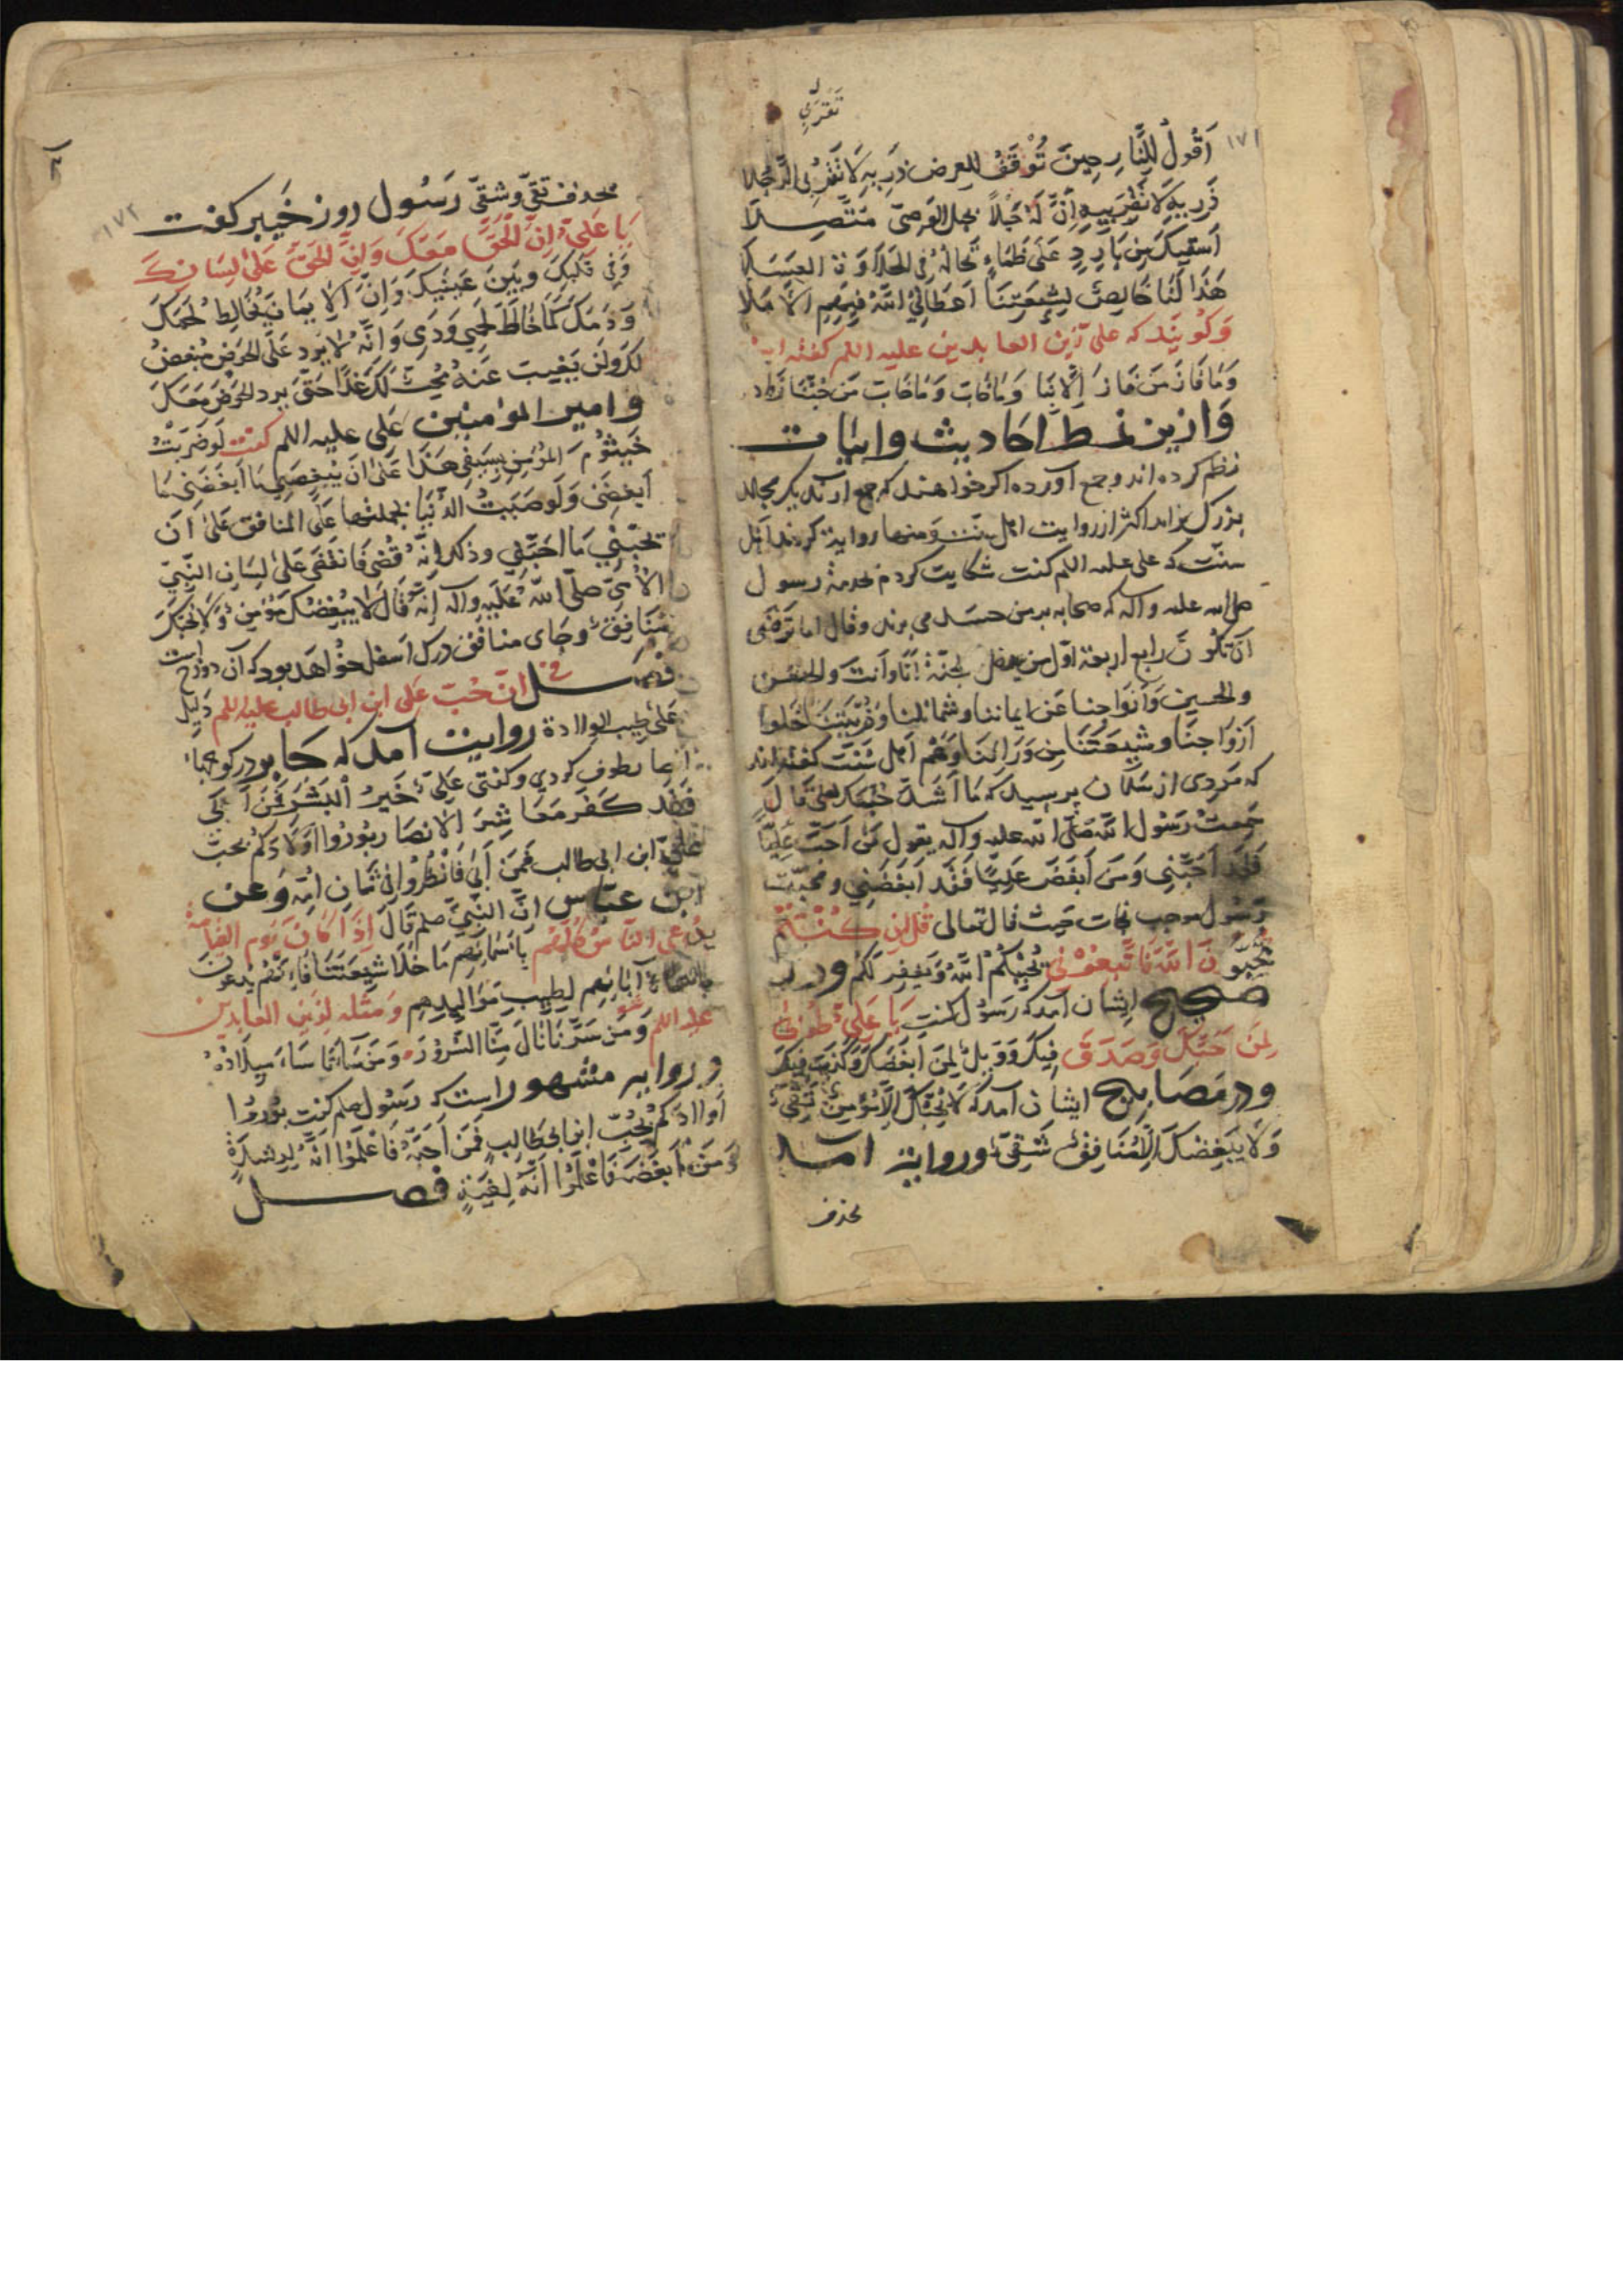 تقربي
١٧١
اَقُولُ لِلنَّارِ حِينَ تُوْقَفُ لِلعرض ذَرِيهِ لَا تَقْرَبِي الرَّجُلا
ذَرِيهِ لَا تَقْرَبِيهِ اِنَّ لَهُ حَبْلاً بحبل الوَصِيّ مُتَّصِلَا
اَسقِيكَ مِن بَارِدٍ عَلَى ظَمَاءٍ تَخَالُهُ فِي الحَلَاوَةِ العَسَلَا
هَذَا لَنَا خَالِصٌ لِشِيعَتِنَا اَعطَانِيَ اللّٰهُ فِيهِم الاَمَلا
وَكويند كه على زين العابدين عليه اللم كفته
وَمَا فَازَ مَن فَازَ اِلَّا بِنَا وَمَا خَابَ مَن حُبُّنَا زَاد
وَازين نمط احاديث وابيات
نظم كرده اند وجمع آورده اكر خواهند كه جمع آرند يكى مجلد
بزرك برايد اكثر از روايت اهل سنت ومنها روايه كردند اهل
سنّت كه على علىه اللم كفت شكايت كردم بخدمة رسول
صلى الله علىه وآله كه صحابه بر من حسد مى برند وقال اما ترضى
اَن تكُونَ رابع اربعة اوّل من يدخل الجنّة اَنَا وَاَنتَ والحسن
والحسين وَاَزوَاجنا عَن ايماننا وشمائلنا وَذُرِّيَّتنَا خَلف
اَزوَاجنَا وَشِيعَتنَا مِن وَرَائنَا وَهم اهل سُنّت كفته اند
كه مَردى از سلمان پرسيد كه مَا اَشَدَّ حُبَّكَ لِعَلِيّ قَالَ
سَمِعتُ رَسُولَ اللّٰه صَلَّى اللّٰه علىه وآله يقول مَن اَحَبَّ عَلِيًّا
فَقَد اَحَبَّنِي وَمَن اَبغَضَ عَلِيًّا فَقَد اَبغَضَنِي ومحبّت
رَسُول موجب نجات حيث قال تعالى قُل اِن كُنتُم
تُحِبُّونَ اللّٰهَ فَاتَّبِعُونِي يُحبِبكُمُ اللّٰهُ وَيَغفِر لَكُم ودر
صحيح ايشان آمد كه رَسُول كفت يَا عَلِيّ طُوبَى
لِمَن اَحَبَّكَ وَصَدَقَ فِيكَ وَوَيلٌ لِمَن اَبغَضَكَ وَكَذَبَ فِيكَ
ودر مَصَابيح ايشان آمد كه لَا يُحِبُّكَ اِلَّا مُؤمِنٌ تَقِيٌّ
وَلَا يُبغِضُكَ اِلَّا مُنَافِقٌ شَقِيٌّ ودر رواية آمد
بحذف
١٧٢
بحذف تقىّ وشقىّ رَسُول روز خَيبر كفت
يَا عَلِيّ اِنَّ الحَقَّ مَعَكَ وَاِنَّ الحَقَّ عَلَى لِسَانِكَ
وَفِي قَلبِكَ وبَينَ عَينَيكَ وَاِنَّ الاِيمَانَ يُخَالِطُ لَحمَكَ
وَدَمَكَ كَمَا خَالَطَ لَحمِي وَدَمِى وَاِنَّهُ لَا يَرِد عَلَى الحَوضِ مُبغِضٌ
لَكَ وَلَن يَغِيب عَنهُ مُحِبٌّ لَكَ غَدًا حَتَّى يرد الحَوضَ مَعَكَ
وامير المؤمنين على عليه اللم كفت لَو ضَرَبتُ
خَيشُومَ المؤمِنِ بِسَيفِي هَذَا عَلَى اَن يُبغِضَنِي مَا اَبغَضَنِي مَا
اَبغَضَنِي وَلَو صَبَبتُ الدُّنيَا بِجُملتهَا عَلَى المنافق عَلَى اَن
يُحِبَّنِي مَا اَحَبَّنِي وذلك اِنَّهُ قُضِيَ فَانقَضَى عَلَى لِسَانِ النَّبِيّ
الاُمِّيّ صلّى اللّٰه عَلَيهِ وآله اِنَّهُ قَالَ لَا يُبغِضُكَ مؤمِنٌ وَلَا يُحِبُّكَ
مُنَافِقٌ وجَاى منافق درك اَسفل خواهد بود كه آن دوزخ است
فصل في اَنَّ حُبّ عَلى ابن ابى طالب عليه اللم دَلِيل
عَلَى طِيب الولادة روايت آمد كه جابر در كوچهاء
انصار طوف كردى وكفتى عَلِيٌّ خَيرُ البَشَرِ فَمَن اَبَى
فَقَد كَفَرَ مَعَاشِرَ الانصار بُورُوا اَولَادَكُم بحبّ
عَلِيّ ابن ابى طالب فَمَن اَبَى فَانظُرُوا فى شَانِ اُمِّه وَعن
ابن عبّاس اَنَّ النَّبِيّ صلعم قَالَ اِذَا كَانَ يَوم القيامة
يُدعى النَّاسُ كُلُّهُم بِاَسمَائِهِم مَا خَلَا شِيعَتنَا فَاِنَّهُم يُدعَون
بِاَسمَاءِ آبَائِهِم لِطِيبِ مَوَالِيدِهِم وَمثله لِزَين العَابدين
عليه اللم وَمَن سَرَّنَا نَالَ مِنَّا السُّرُورَ وَمَن سَاءَنَا سَاءَ مِيلَادُهُ
ورواية مشهور است كه رَسُول صلعم كفت بُورُوا
اَولادَكُم بِحُبّ ابن ابى طَالِبٍ فَمَن اَحَبَّهُ فَاعلَمُوا اَنَّهُ لِرِشدَةٍ
وَمَن اَبغَضَهُ فَاعلَمُوا اَنَّهُ لِغَيَّةٍ فصل